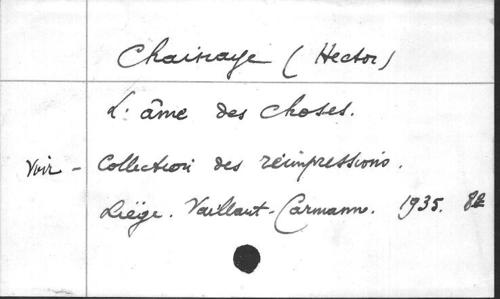 Chainaye (Hector)
L'âme des choses.
Voir - Collection des réimpressions.
Liège. Vaillant-Carmann. 1935. 8º